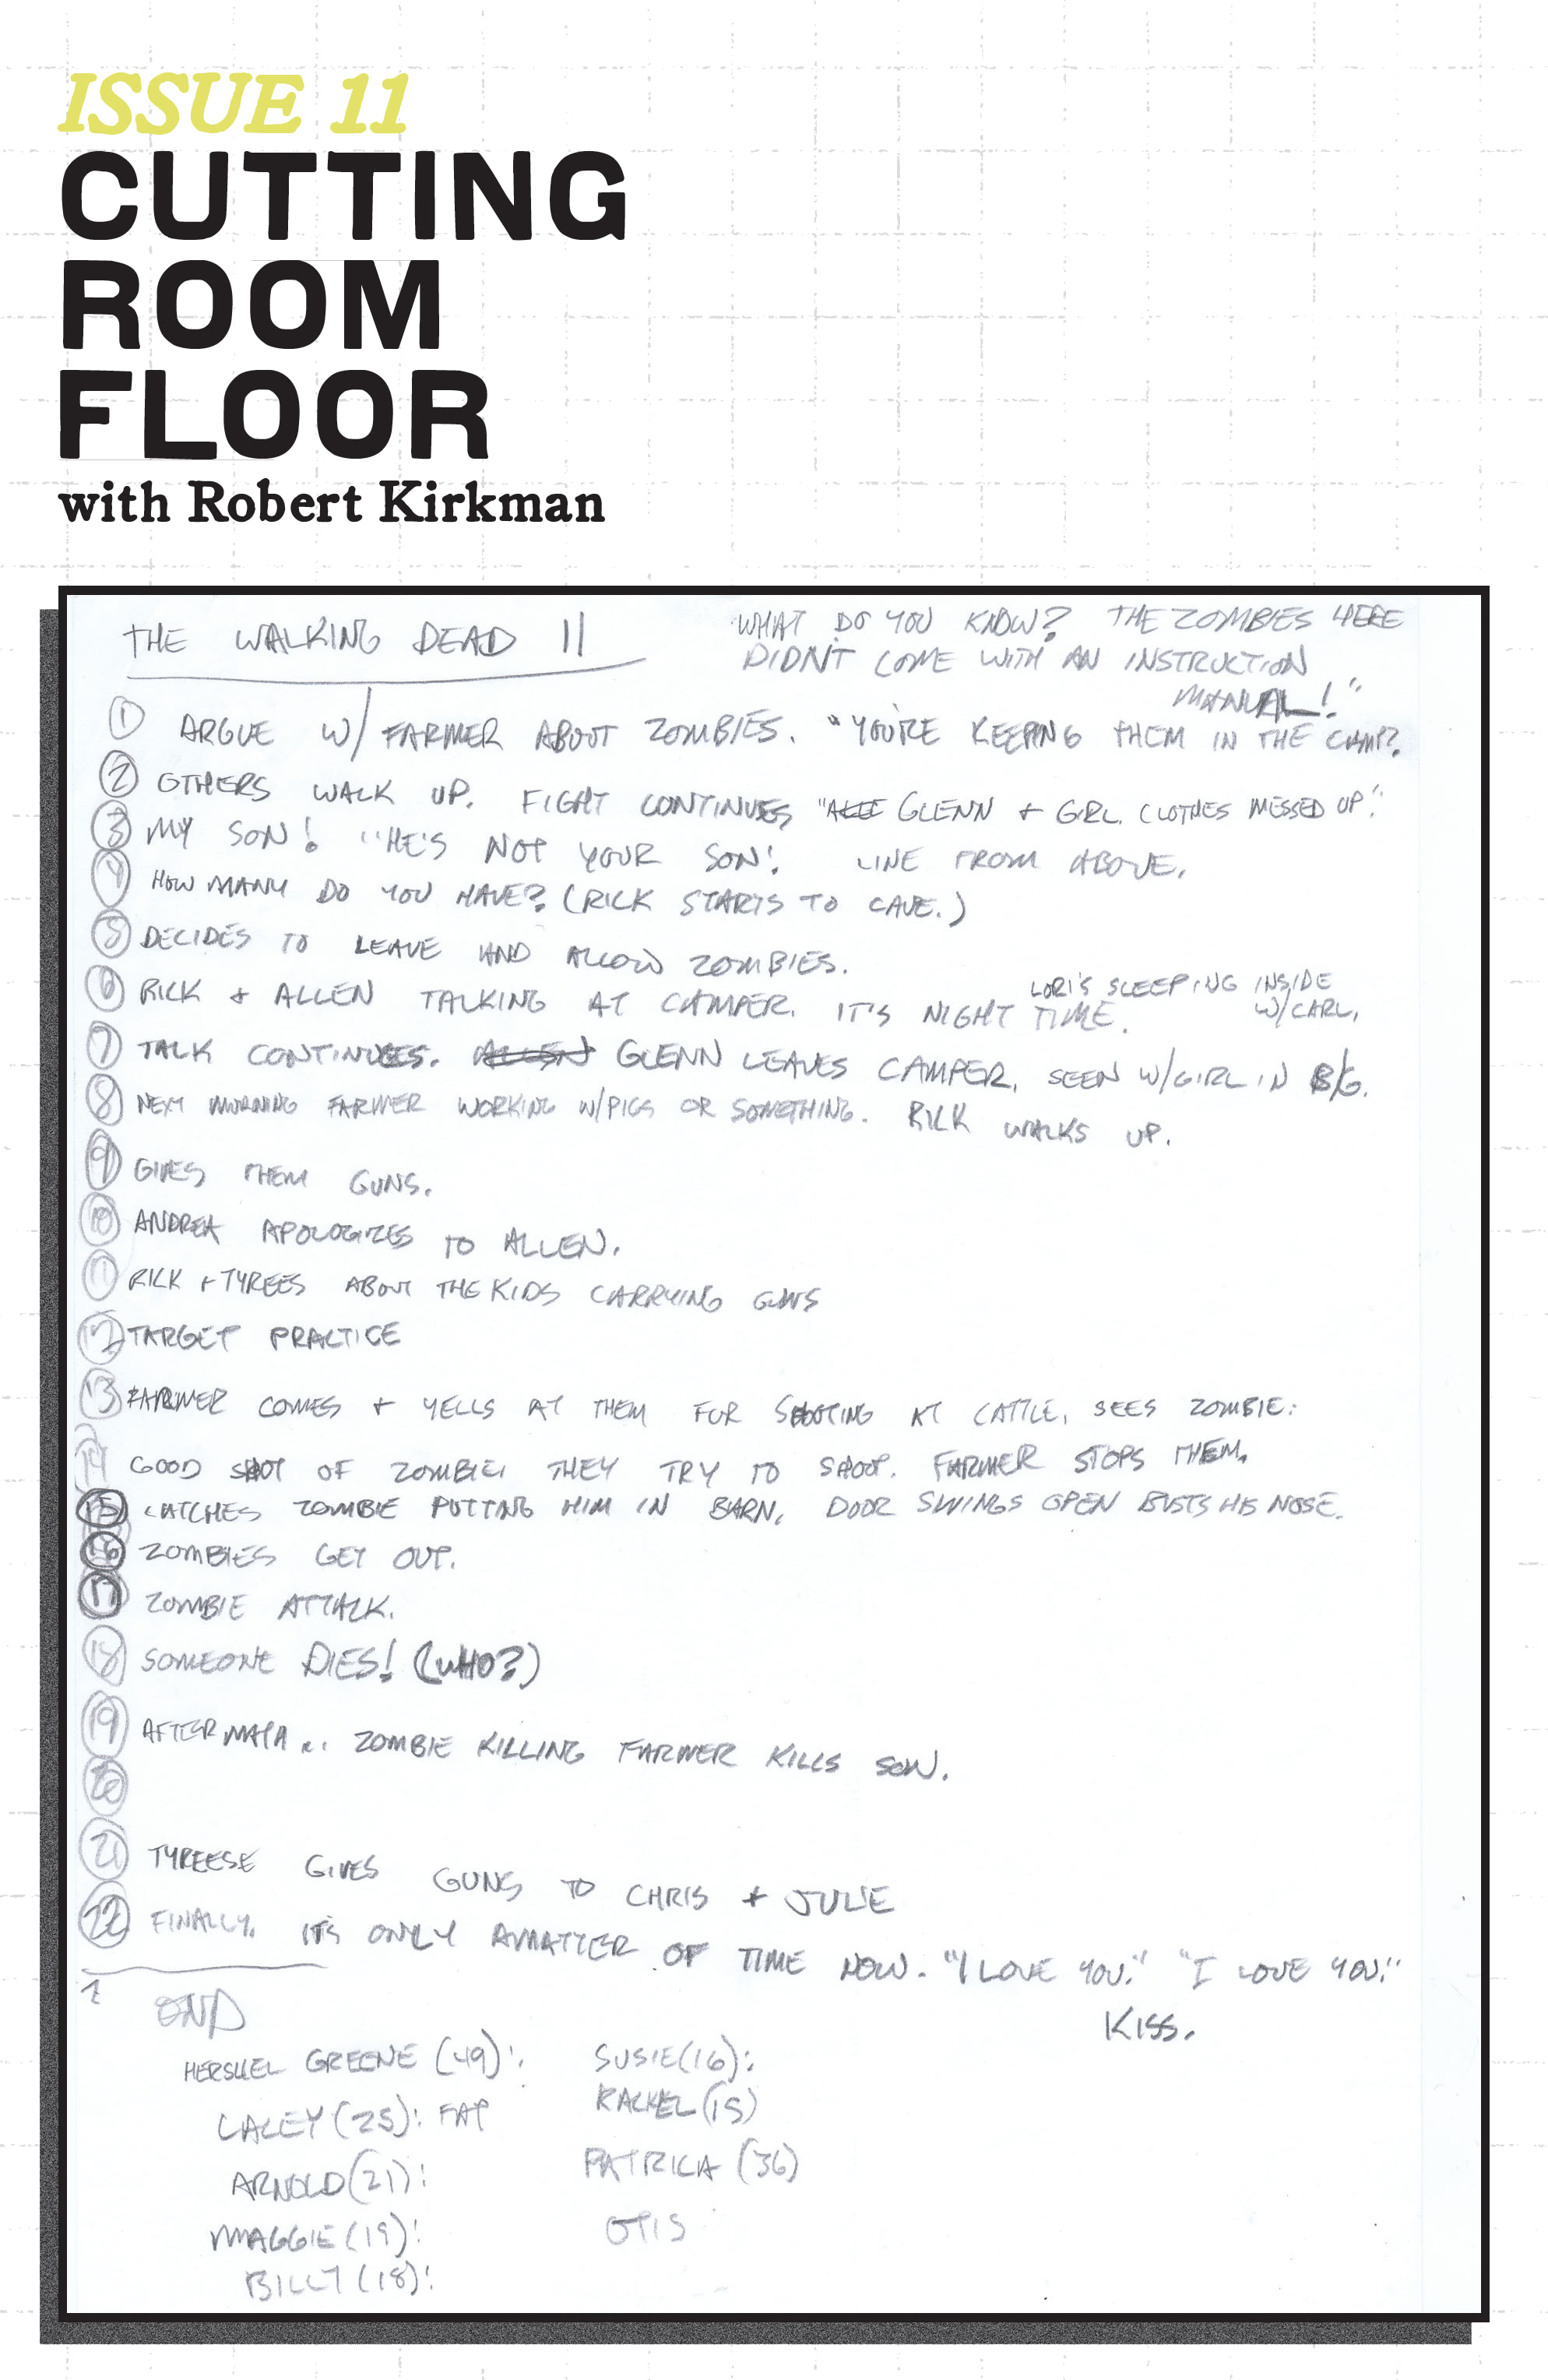 ISSUE 11
CUTTING
ROOM
FLOOR
with Robert Kirkman
THE WALKING DEAD 11
WHAT DO YOU KNOW? THE ZOMBIES HERE
DIDN'T COME WITH AN INSTRUCTION
MANUAL!"
① ARGUE W/ FARMER ABOUT ZOMBIES. "YOU'RE KEEPING THEM IN THE
② OTHERS WALK UP. FIGHT CONTINUES GLENN + GIRL. CLOTHES MESSED UP."
③ MY SON! "HE'S NOT YOUR SON! LINE FROM ABOVE.
④ HOW MANY DO YOU HAVE? (RICK STARTS TO CAVE.)
⑤ DECIDES TO LEAVE AND ALLOW ZOMBIES.
⑥ RICK + ALLEN TALKING AT CAMPER. IT'S NIGHT TIME. LORI'S SLEEPING INSIDE
W/CARL.
⑦ TALK CONTINUES. ALLEN GLENN LEAVES CAMPER, SEEN W/GIRL IN B/G.
⑧ NEXT MORNING FARMER WORKING W/PIGS OR SOMETHING. RICK WALKS UP.
⑨ GIVES THEM GUNS.
⑩ ANDREA APOLOGIZES TO ALLEN.
⑪ RICK + TYREES ABOUT THE KIDS CARRYING GUNS
⑫ TARGET PRACTICE
⑬ FARMER COMES + YELLS AT THEM FOR SHOOTING AT CATTLE, SEES ZOMBIE.
⑭ GOOD SHOT OF ZOMBIE. THEY TRY TO SHOOT. FARMER STOPS THEM.
⑮ CATCHES ZOMBIE PUTTING HIM IN BARN, DOOR SWINGS OPEN BUSTS HIS NOSE.
⑯ ZOMBIES GET OUT.
⑰ ZOMBIE ATTACK.
⑱ SOMEONE DIES! (WHO?)
⑲ AFTERMATH... ZOMBIE KILLING FARMER KILLS SON.
⑳
㉑ TYREESE GIVES GUNS TO CHRIS + JULIE
㉒ FINALLY. IT'S ONLY A MATTER OF TIME NOW. "I LOVE YOU." "I LOVE YOU."
KISS.
END
HERSHEL GREENE (49):
LACEY (25): FAT
ARNOLD (21):
MAGGIE (19):
BILLY (18):
SUSIE (16):
RACHEL (15)
PATRICA (36)
OTIS